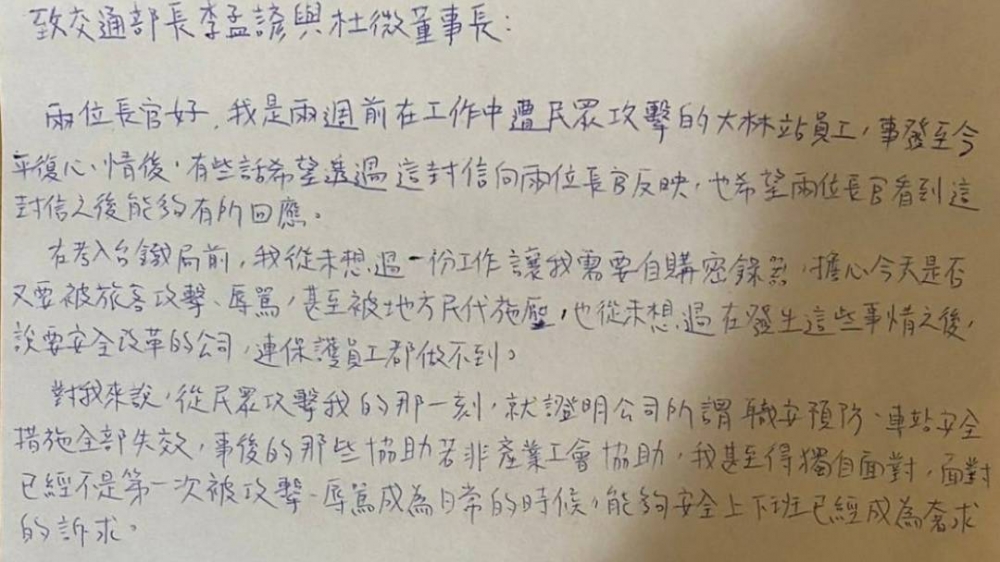 致交通部長李孟諺與杜微董事長：
兩位長官好，我是兩週前在工作中遭民眾攻擊的大林站員工，事發至今
平復心情後，有些話希望透過這封信向兩位長官反映，也希望兩位長官看到這
封信之後能夠有所回應。
在考入台鐵局前，我從未想過一份工作讓我需要自購密錄器，擔心今天是否
又要被旅客攻擊、辱罵，甚至被地方民代施壓，也從未想過在發生這些事情之後，
說要安全改革的公司，連保護員工都做不到。
對我來說，從民眾攻擊我的那一刻，就證明公司所謂職安預防、車站安全
措施全部失效，事後的那些協助若非產業工會協助，我甚至得獨自面對，面對
已經不是第一次被攻擊、辱罵成為日常的時候，能夠安全上下班已經成為奢求
的訴求。